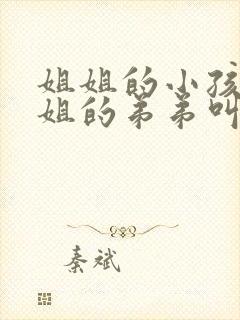 姐姐的小孩
姐的弟弟叫
秦斌